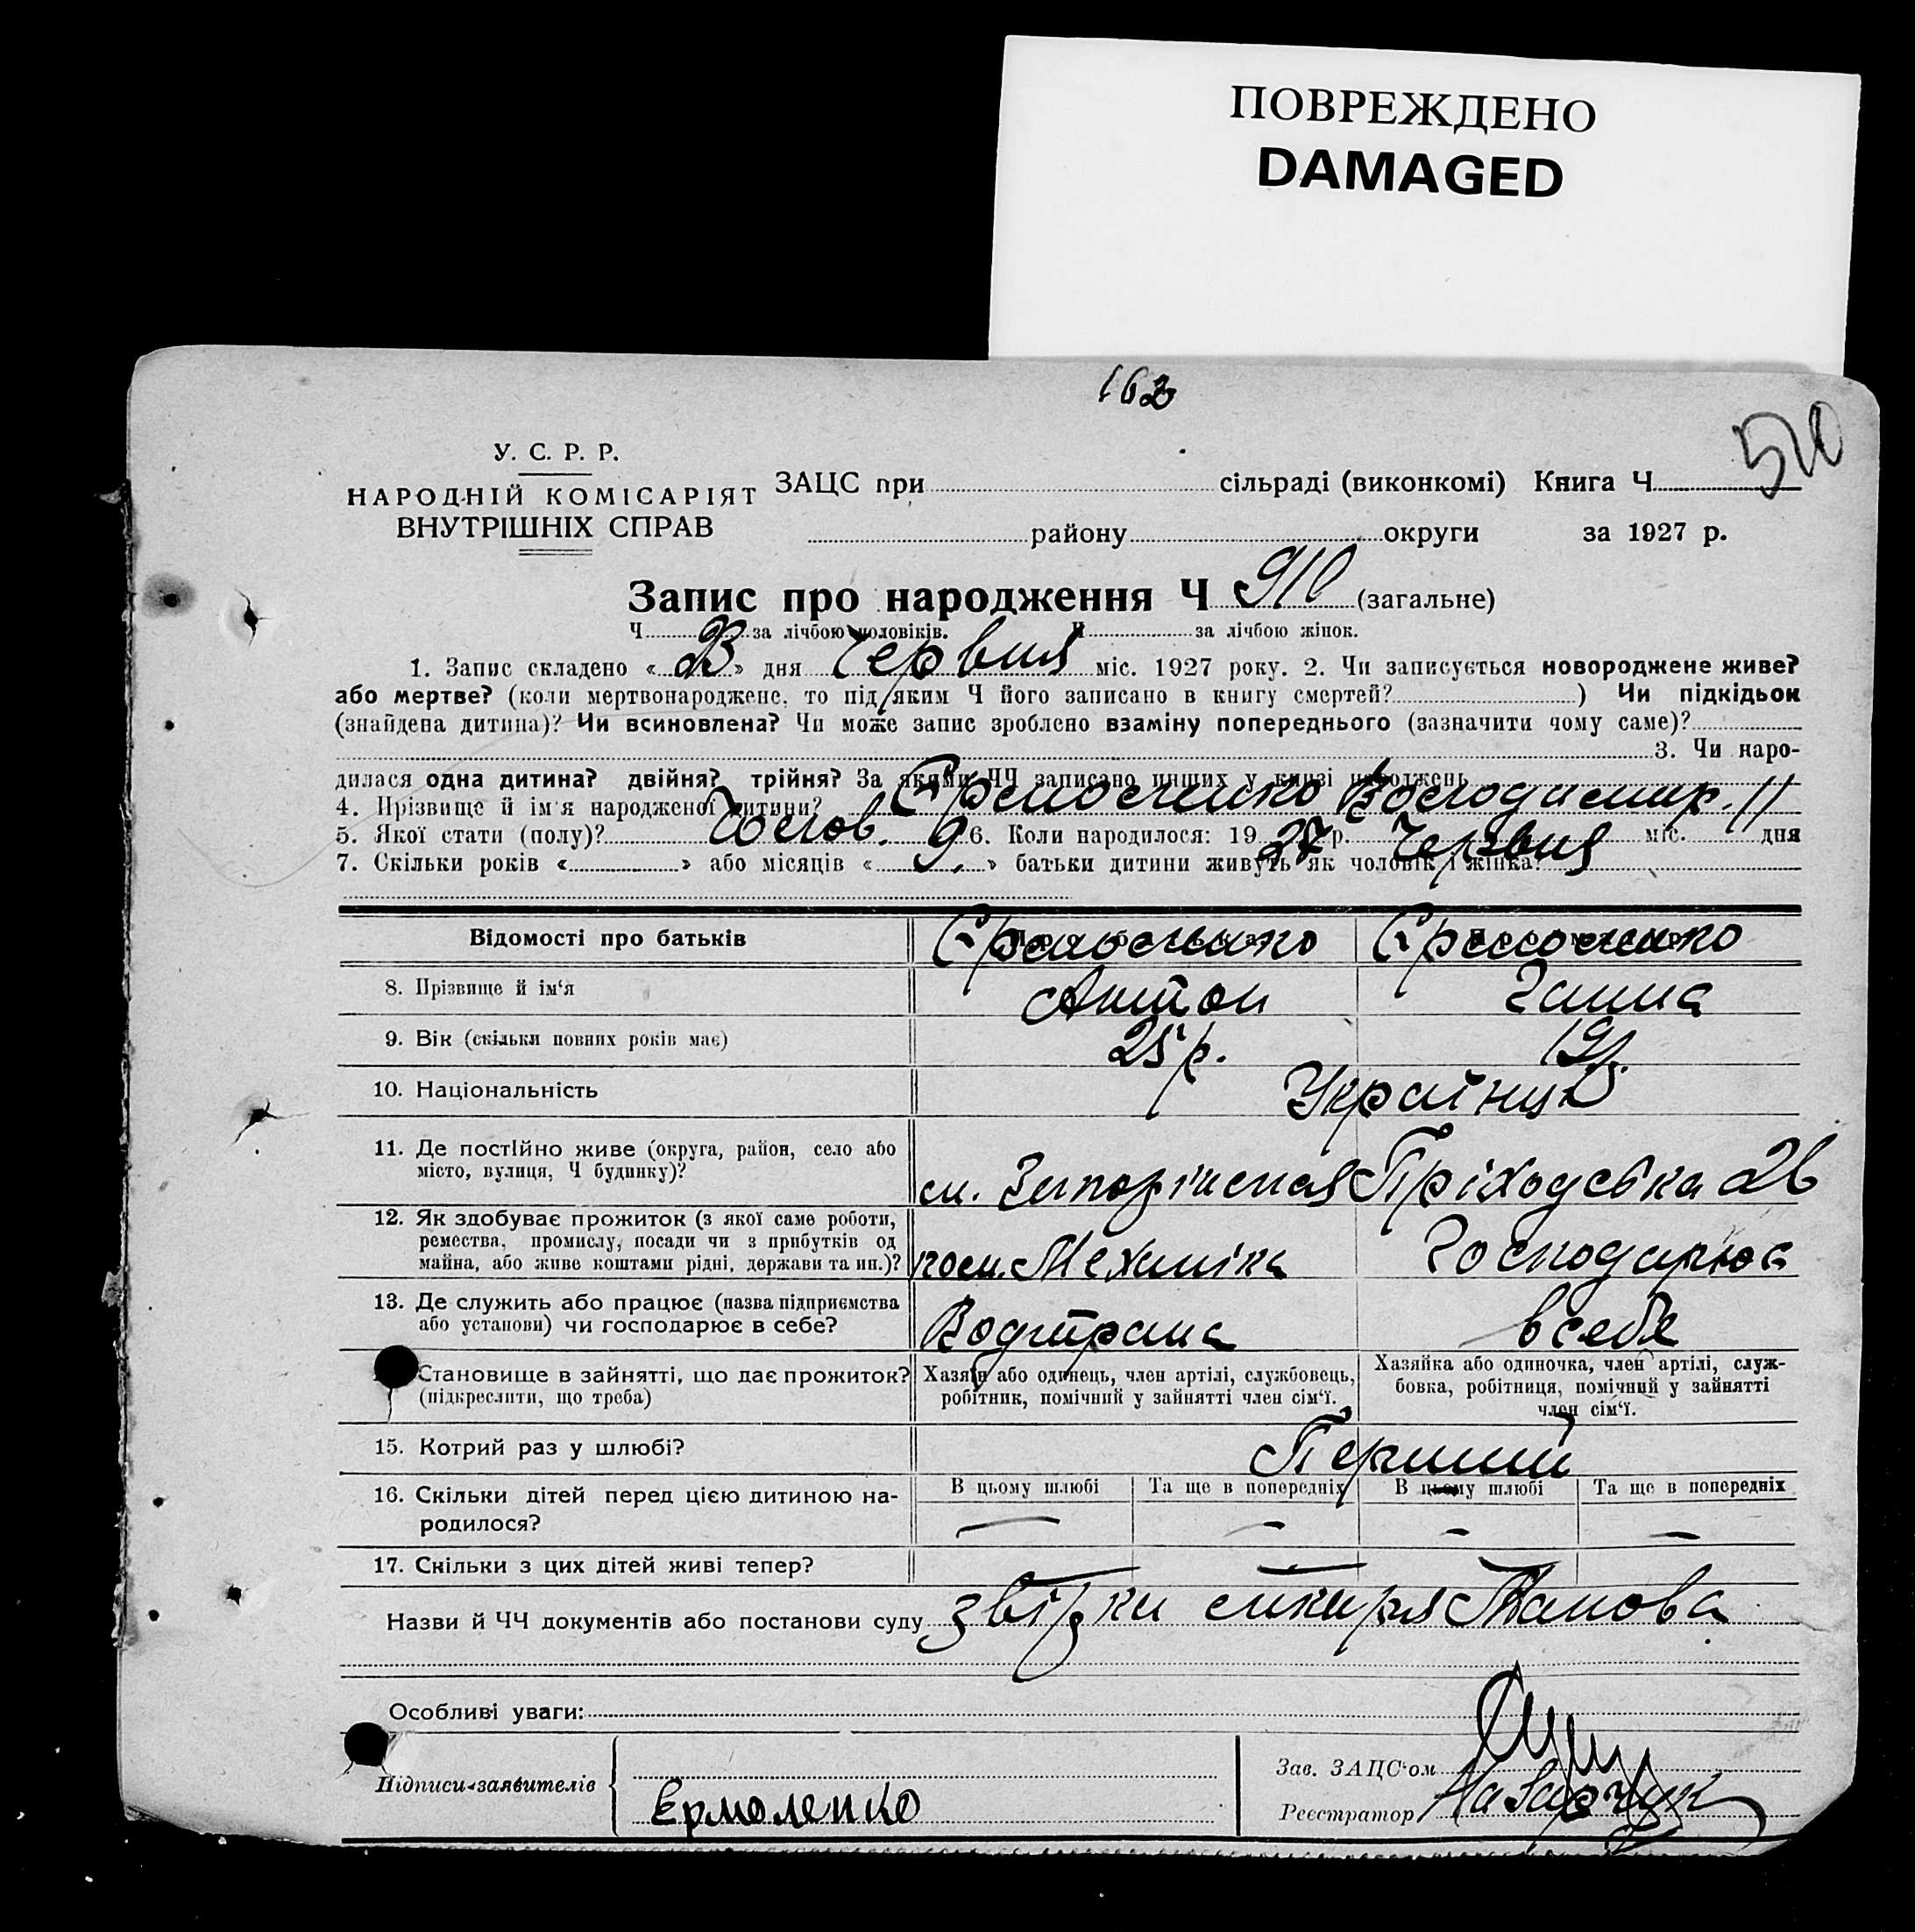 ПОВРЕЖДЕНО
DAMAGED
162
510
У. С. Р. Р.
НАРОДНІЙ КОМІСАРІЯТ
ВНУТРІШНІХ СПРАВ
ЗАЦС при сільраді (виконкомі) Книга Ч
району округи за 1927 р.
Запис про народження Ч 910 (загальне)
Ч за лічбою чоловіків. Ч за лічбою жінок.
1. Запис складено « 23 » дня Червня міс. 1927 року. 2. Чи записується новороджене живе?
або мертве? (коли мертвонароджене, то під яким Ч його записано в книгу смертей? ) Чи підкідьок
(знайдена дитина)? Чи всиновлена? Чи може запис зроблено взаміну попереднього (зазначити чому саме)?
3. Чи наро-
дилася одна дитина? двійня? трійня? За якими ЧЧ записано инших у книзі народжень
4. Прізвище й ім'я народженої дитини? Єрмоленко Володимир. 11
5. Якої стати (полу)? Чолов. 6. Коли народилося: 19 27 р. Червня міс. дня
7. Скільки років « » або місяців « 9. » батьки дитини живуть як чоловік і жінка?
Відомості про батьків Єрмоленко Єрмоленко
8. Прізвище й ім'я Антон Ганна
9. Вік (скільки повних років має) 25 р. 19 р.
10. Національність Українці
11. Де постійно живе (округа, район, село або
місто, вулиця, Ч будинку)?
м. Запоріжжя Пріходська 26
12. Як здобуває прожиток (з якої саме роботи,
ремества, промислу, посади чи з прибутків од
майна, або живе коштами рідні, держави та ин.)?
Механіка Господарює
13. Де служить або працює (назва підприємства
або установи) чи господарює в себе?
в себе
Становище в зайнятті, що дає прожиток?
(підкреслити, що треба)
Хазяїн або одинець, член артілі, службовець,
робітник, помічний у зайнятті член сім'ї.
Хазяйка або одиночка, член артілі, служ-
бовка, робітниця, помічний у зайнятті
член сім'ї.
15. Котрий раз у шлюбі? Перший
16. Скільки дітей перед цією дитиною на-
родилося?
В цьому шлюбі Та ще в попередніх В цьому шлюбі Та ще в попередніх
— — — —
17. Скільки з цих дітей живі тепер? — — —
Назви й ЧЧ документів або постанови суду звізки
Особливі уваги:
Підписи заявителів Ермоленко
Зав. ЗАЦС'ом
Реєстратор